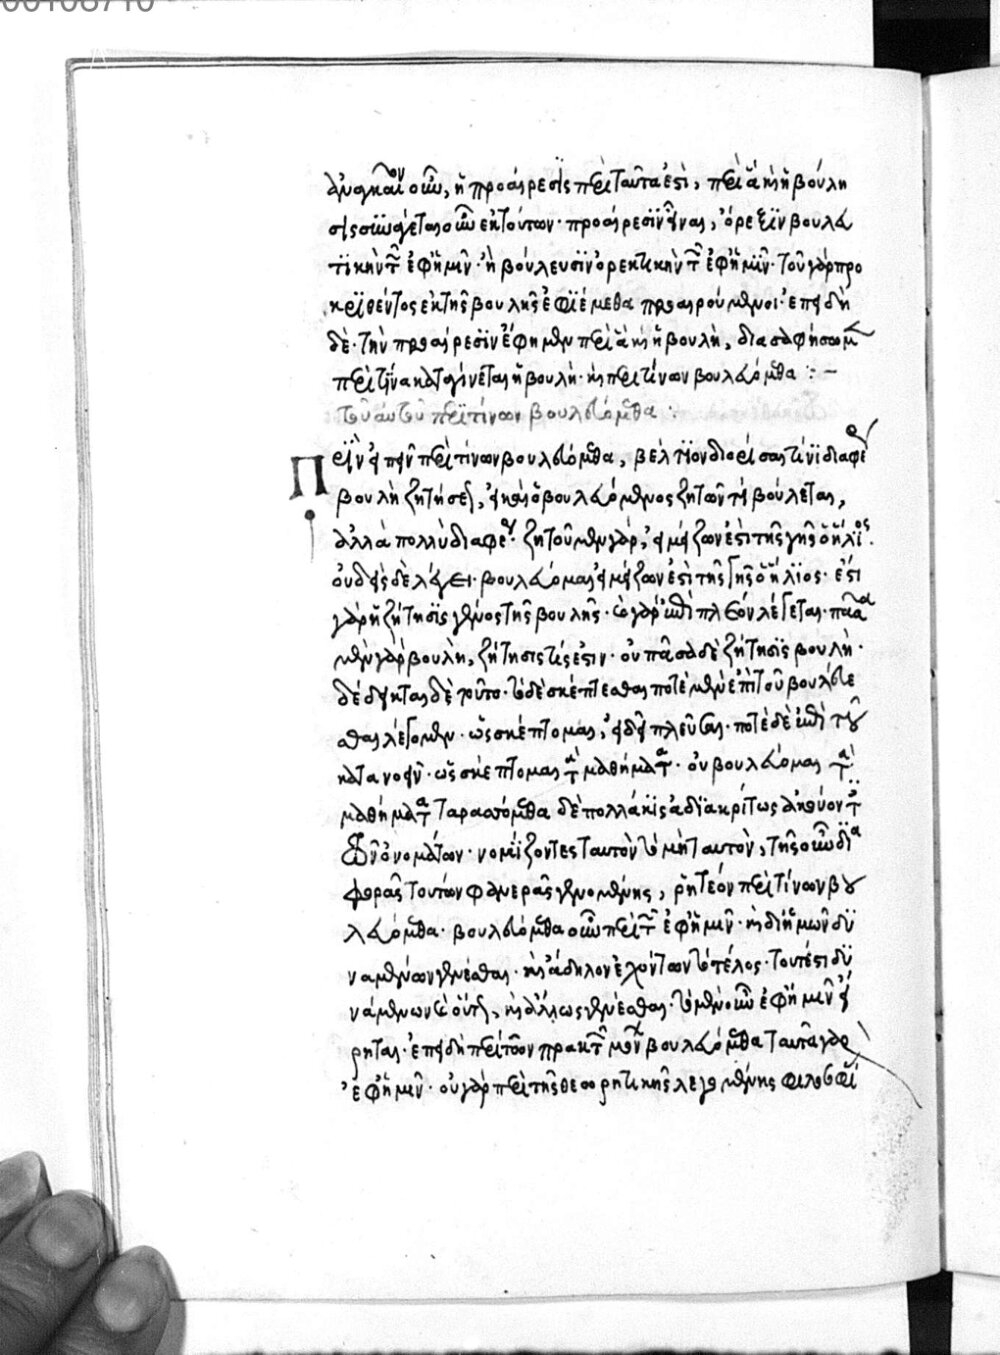 00108710
ἀναγκαῖον οὖν, ἡ προαίρεσις περὶ ταῦτα ἐστὶ, περὶ ἃ καὶ ἡ βούλη
σις συνάγεται οὖν ἐκ τούτων· προαίρεσιν εἶναι, ὄρεξιν βουλευ
τικὴν τῶν ἐφ' ἡμῖν· ἢ βούλευσιν ὀρεκτικὴν τῶν ἐφ' ἡμῖν· τοῦ γὰρ προ
κριθέντος ἐκ τῆς βουλῆς ἐφιέμεθα προαιρούμενοι· ἐπειδὴ
δὲ τὴν προαίρεσιν ἔφημεν περὶ ἃ καὶ ἡ βουλὴ, διασαφήσωμεν
περὶ τίνα καταγίνεται ἡ βουλὴ· καὶ περὶ τίνων βουλευόμεθα :–
τοῦ αὐτοῦ περὶ τίνων βουλευόμεθα ·
Πρὶν εἰπεῖν περὶ τίνων βουλευόμεθα, βέλτιον διορίσαι τίνι διαφέρει
βουλὴ ζητήσεως, εἰ καὶ ὁ βουλευόμενος ζητῶν τι βούλεται,
ἀλλὰ πολλὺ διαφέρει· ζητοῦμεν γὰρ, εἰ μείζων ἐστὶ τῆς γῆς ὁ ἥλιος·
οὐδεὶς δὲ λέγει· βουλεύομαι εἰ μείζων ἐστὶ τῆς γῆς ὁ ἥλιος· ἔστι
γὰρ ἡ ζήτησις γένος τῆς βουλῆς· ὃ γὰρ ἐπὶ πλέον λέγεται· πᾶσα
μὲν γὰρ βουλὴ, ζήτησις τίς ἐστιν· οὐ πᾶσα δὲ ζήτησις βουλὴ·
δέδεικται δὲ τοῦτο· τὸ δὲ σκέπτεσθαι ποτὲ μὲν ἐπὶ τοῦ βουλεύε
σθαι λέγομεν· ὡς σκέπτομαι, εἰ δεῖ πλεῦσαι· ποτὲ δὲ ἐπὶ τοῦ
κατανοεῖν· ὡς σκέπτομαι τὰ μαθήματα· οὐ βουλεύομαι τὰ
μαθήματα ταρασσόμεθα δὲ πολλάκις ἀδιακρίτως ἀκούοντες
τῶν ὀνομάτων· νομίζοντες ταυτὸν τὸ μὴ ταυτὸν, τῆς οὖν δια
φορᾶς τούτων φανερᾶς γενομένης, ῥητέον περὶ τίνων βου
λευόμεθα· βουλευόμεθα οὖν περὶ τῶν ἐφ' ἡμῖν· καὶ δι' ἡμῶν δυ
ναμένων γενέσθαι· καὶ ἄδηλον ἐχόντων τὸ τέλος· τουτέστι δυ
ναμένων καὶ οὕτως, καὶ ἄλλως γενέσθαι· τὸ μὲν οὖν ἐφ' ἡμῖν εἴ
ρηται· ἐπειδὴ περὶ τῶν πρακτῶν μόνων βουλευόμεθα ταῦτα γὰρ
ἐφ' ἡμῖν· οὐ γὰρ περὶ τῆς θεωρητικῆς λεγομένης φιλοσοφί